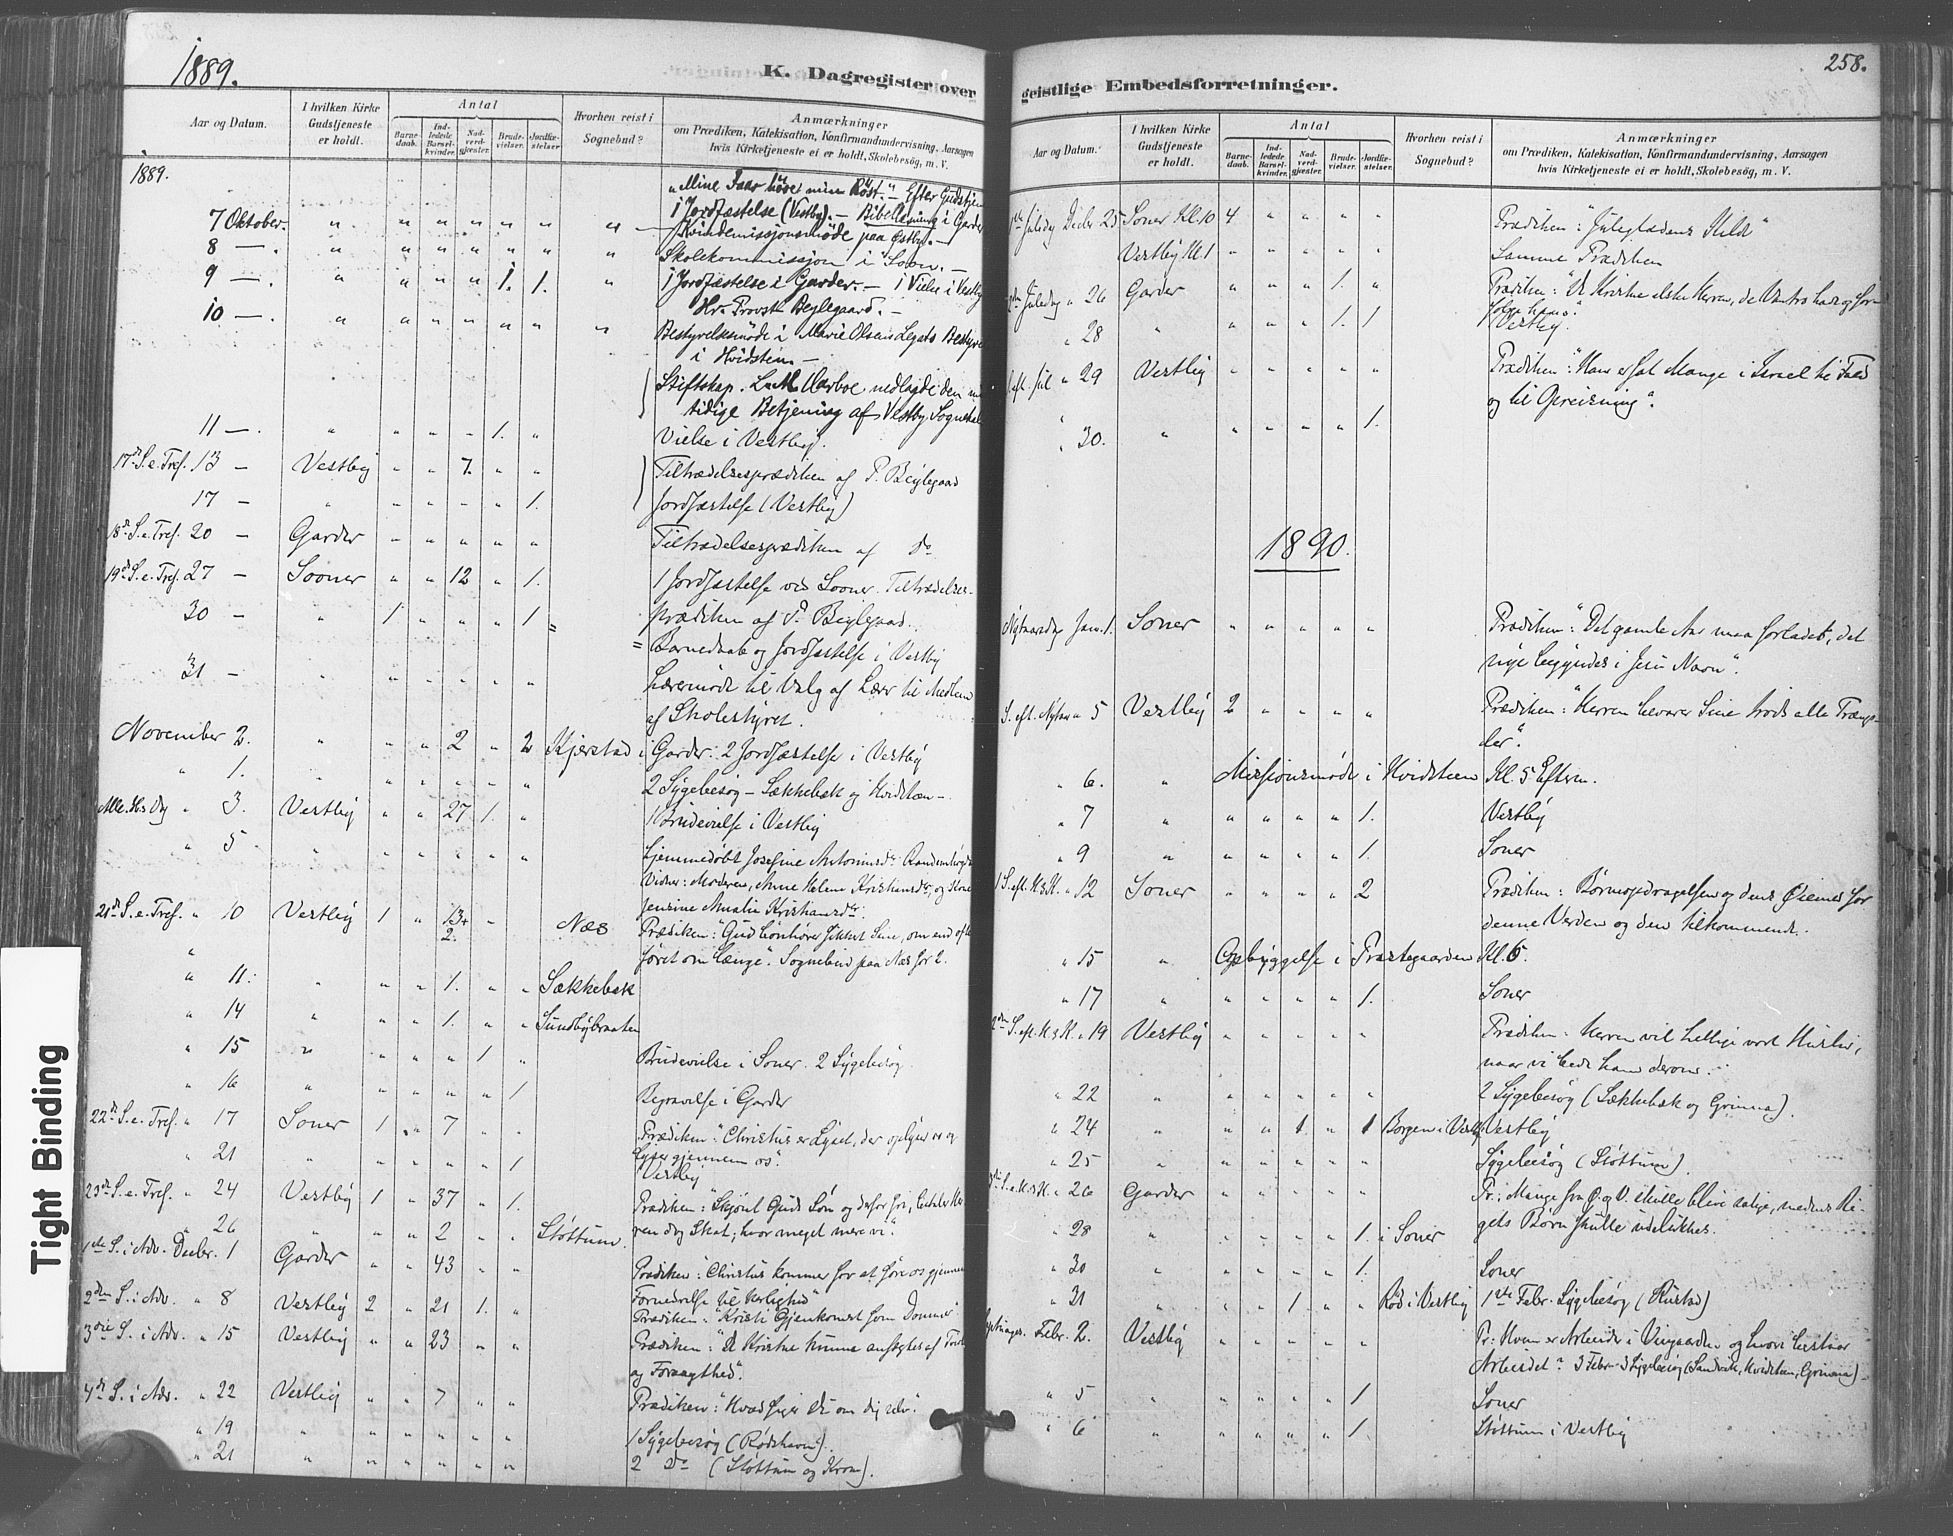 1889.
K. Dagregister over
Aar og Datum.
I hvilken Kirke Gudstjeneste er holdt.
Antal
Barnedaab.
Indledede Barselkvinder.
Nadverdgjæster.
Brudevielser.
Jordfæstelser.
Hvorhen reist i Sognebud?
Anmærkninger
om Prædiken, Katekisation, Konfirmandundervisning, Aarsagen
hvis Kirketjeneste ei er holdt, Skolebesøg, m. V.
1889.
"Mine Faar höre min Röst." Efter Gudstjen
7 Oktober. " " " " " " " 1 Jordfæstelse (Vestby). — Bibellæsning i Garder
8 — . " " " " " " " Kvindemissjonsmöde paa Østby. —
Skolekommissjon i Soon. —
9 — . " " " " 1. 1. " 1 Jordfæstelse i Garder. — 1 Vielse i Vestby
Hr. Provst Beylegaard. —
10 — . " " " " " " " Bestyrelsesmöde i Marie Olsens Legats Bestyre
i Hvidsten —
Stiftskap. L. M. Aarboe nedlagde den
tidige Betjening af Vestby Sognekal
11 — . " " " " 1. " Vielse i Vestby.
17de S. e. Tref. 13 — Vestby " " 7. " " Tiltrædelsesprædiken af P. Beylegaard
17 — " " " " " 1. Jordfæstelse (Vestby)
18de S. e. Tref. 20 — Garder " " " " " Tiltrædelsesprædiken af do
19de S. e. Tref. 27 — Sooner " " 12 " 1. 1 Jordfæstelse ved Sooner. Tiltrædelses-
prædiken af P. Beylegaard.
30 — " 1 " " " 1 = = Barnedaab og Jordfæstelse i Vestby
31 — " " " " " " Læremöde til Valg af Lærer til Medlem
af Skolestyret.
November 2. " " " 2 " 2 Kjærstad i Garder: 2 Jordfæstelse i Vestby
" 1. " " " " " " 2 Sygebesøg — Sækkebæk og Hvidsten —
Alle H. Dag " 3. Vestby " " 27 1. " 1 Brudevielse i Vestby
" 5 " " " " " " Hjemmedöbt Josefine Antonius
Vidner: Moderen, Anne Helene Kristiansdr, og
Jensine Amalie Kristiansdr.
21de S. e. Tref. " 10 Vestby 1 " 13+2. " Næs Prædiken: "Gud bönhörer sikkert Sine, om end ofte
först om længe. Sognebud paa Næs for 2.
" 11. " " " 1. " " Sækkebæk
" 14 " " " 1. " " Sundbybraaten
" 15 " " " " 1 " Brudevielse i Soner. 2 Sygebesøg.
" 16 " " " " " 1 Begravelse i Garder
22de S. e. Tref. " 17 Soner 1 " 7 " " Prædiken: "Christus er Lyset, der oplyser os og
lyser gjennem os".
" 21 " " " " " 1 Vestby
23de S. e. Tref. " 24 Vestby 1 " 37 " 1. Prædiken: "Skjönt Guds Sön og derfor fri, betaler Her-
ren dog Skat; hvor meget mere vi".
" 26 " " " 2 " " Støttum.
1ste S. i Adv. Decbr. 1 Garder " " 43 " " Prædiken: "Christus kommer for at före os gjennem
Fornedrelse til Herlighed"
2den S. i Adv. " 8 Vestby 2 " 21 1. " Prædiken: "Kristi Gjenkomst som Dommer
3die S. i Adv. " 15 Vestby " " 23 " " Prædiken: "De Kristne kunne anfægtes af Tvivl
og Forsagthed".
4de S. i Adv. " 22 Vestby " " 7 " " Prædiken: "Hvad siger Du om dig selv".
" 19 " " " " " " 1 Sygebesøg (Rödshavn).
" 21 " " " " " " 2 do (Støttum og Krom).
258.
geistlige Embedsforretninger.
Aar og Datum.
I hvilken Kirke Gudstjeneste er holdt.
Antal
Barnedaab.
Indledede Barselkvinder.
Nadverdgjæster.
Brudevielser.
Jordfæstelser.
Hvorhen reist i Sognebud?
Anmærkninger
om Prædiken, Katekisation, Konfirmandundervisning, Aarsagen
hvis Kirketjeneste ei er holdt, Skolebesøg, m. V.
Juledag Decbr 25 Soner Kl. 10 4 " " " " Prædiken: "Juleglædens Kilde"
Vestby Kl 1 " " " " " Samme Prædiken
Juledag " 26 Garder " " " 1. " Prædiken: "De Kristne elske Herren, de Vantro hade og for-
fölge ham."
" 28 " " " " 1. 1 Vestby.
S. eft. Jul " 29 Vestby " " " " " Prædiken: "Han er sat Mange i Israel til Fald
og til Opreisning".
" 30. " " " " " 1.
1890.
Nytaarsdag Jan. 1. Soner " " " " " Prædiken: "Det gamle Aar maa forlades, det
nye begyndes i Jesu Navn".
S. eft. Nytaar " 5 Vestby 2 " " " " Prædiken: "Herren bevarer Sine trods alle Trængs-
ler".
" 6. " Missionsmöde i Hvidsteen Kl. 5 Efterm.
" 7 " " " " " 1. Vestby
" 9 " " " " " 1. Soner
1 S. eft. H3K. " 12 Soner " " " " 2 Prædiken: Börneopdragelsen og dens Øiemed for
denne Verden og den tilkommende.
" 15 " Opbyggelse i Præstegaarden Kl. 6.
" 17 " " " " " 1. Soner
2den S. eft. H3K. " 19 Vestby " " " " " Prædiken: Herren vil hellige vort Husliv,
naar vi bede ham derom.
" 22 " " " " " " 2 Sygebesøg (Sækkebæk og Grimna).
" 24 " " " 1. " 1 Borgen i Vestby Vestby
" 25 " " " " " " Sygebesøg (Støttum).
3die S. e. H3K. " 26 Garder " " " " " Pr: Mange fra Ø. og V. skulle blive salige, medens Ri-
gets Børn skulle udelukkes.
" 28 " " " " " 1. i Soner
" 30 " " " " " 1. Soner
" 31 " " " 1 " " Rød i Vestby 1ste Febr. Sygebesøg (Krustad)
Febr. 2. Vestby " " " " " Pr: Hvem er Arbeider i Vingaarden og hvori bestaar
Arbeidet? 3 Febr. 3 Sygebesøg (Sandvik, Hvidsten, Grimna)
" 5 " " " " " 1 Soner
" 6 " " " " " 1 Støttum i Vestby
Tight Binding